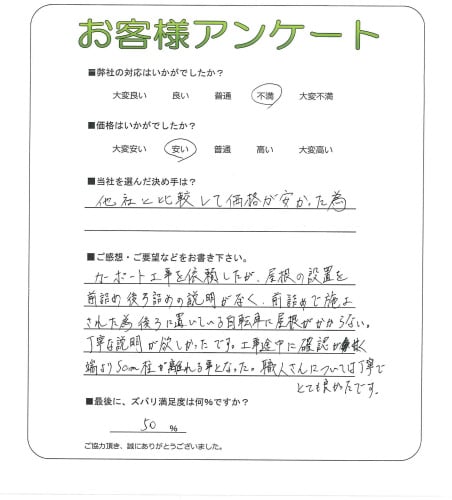 お客様アンケート
■弊社の対応はいかがでしたか？
大変良い 良い 普通 不満 大変不満
■価格はいかがでしたか？
大変安い 安い 普通 高い 大変高い
■当社を選んだ決め手は？
他社と比較して価格が安かった為
■ご感想・ご要望などをお書き下さい。
カーポート工事を依頼したが、屋根の設置を
前詰め後ろ詰めの説明がなく、前詰めで施工
された為後ろに置いている自転車に屋根がかからない。
丁寧な説明が欲しかったです。工事途中に確認が無く
端より50cm柱が離れる事となった。職人さんについては丁寧で
とても良かったです。
■最後に、ズバリ満足度は何％ですか？
50 ％
ご協力頂き、誠にありがとうございました。